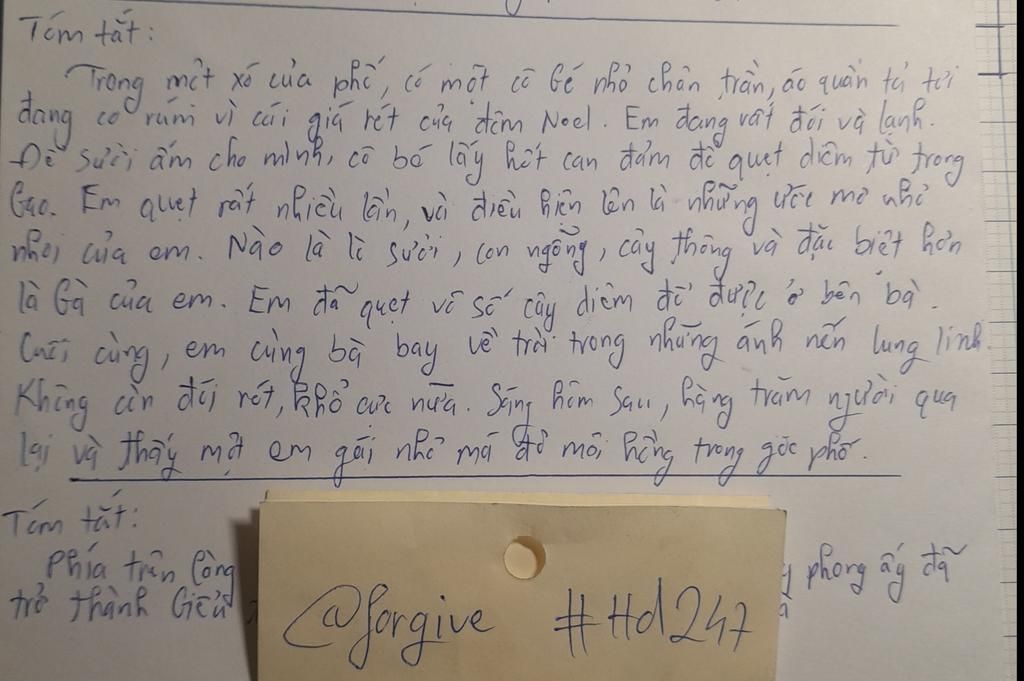 Tóm tắt:
Trong một xó của phố, có một cô bé nhỏ chân trần, áo quần tả tơi
đang co rúm vì cái giá rét của đêm Noel. Em đang rất đói và lạnh.
Để sưởi ấm cho mình, cô bé lấy hết can đảm để quẹt diêm từ trong
bao. Em quẹt rất nhiều lần, và điều hiện lên là những ước mơ nhỏ
nhoi của em. Nào là lò sưởi, con ngỗng, cây thông và đặc biệt hơn
là bà của em. Em đã quẹt vô số cây diêm để được ở bên bà.
Cuối cùng, em cùng bà bay về trời trong những ánh nến lung linh.
Không còn đói rét, khổ cực nữa. Sáng hôm sau, hàng trăm người qua
lại và thấy một em gái nhỏ má đỏ môi hồng trong góc phố.
Tóm tắt:
Phía trên phong ấy đã
trở thành
@forgive #Hd247